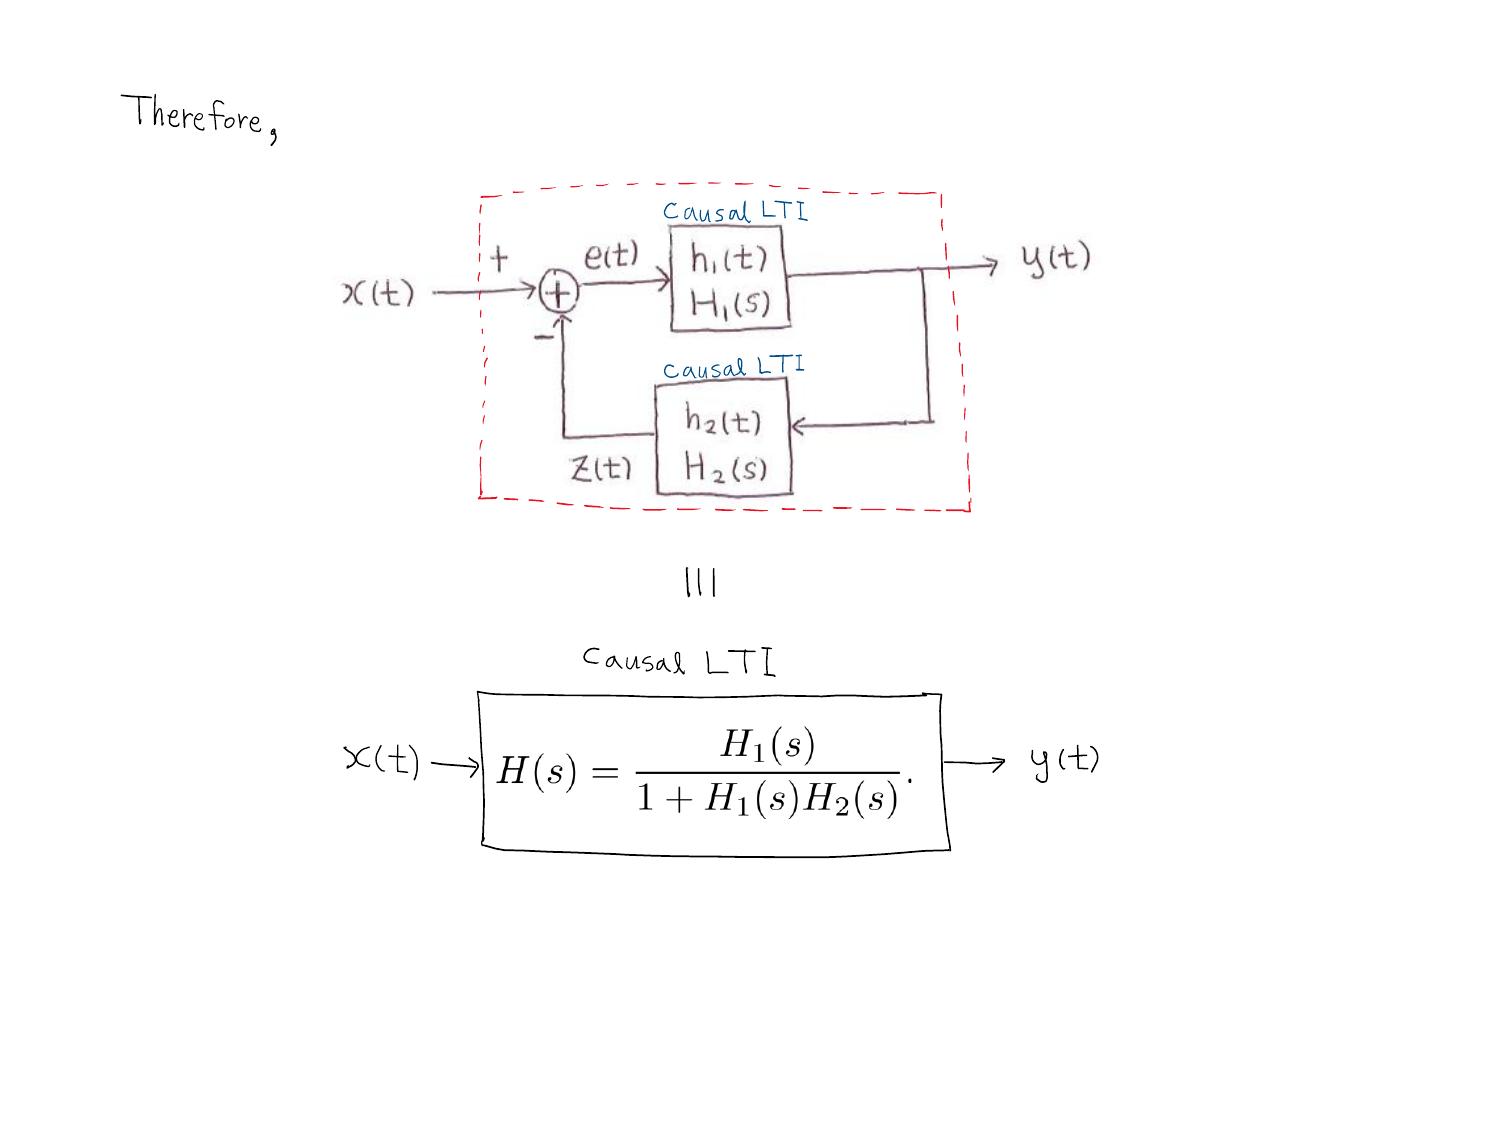 Therefore,
Causal LTI
x(t) + + e(t) h₁(t) y(t)
H₁(s)
−
Causal LTI
h₂(t)
z(t) H₂(s)
|||
Causal LTI
x(t) H(s) = H₁(s) / 1 + H₁(s)H₂(s) . y(t)